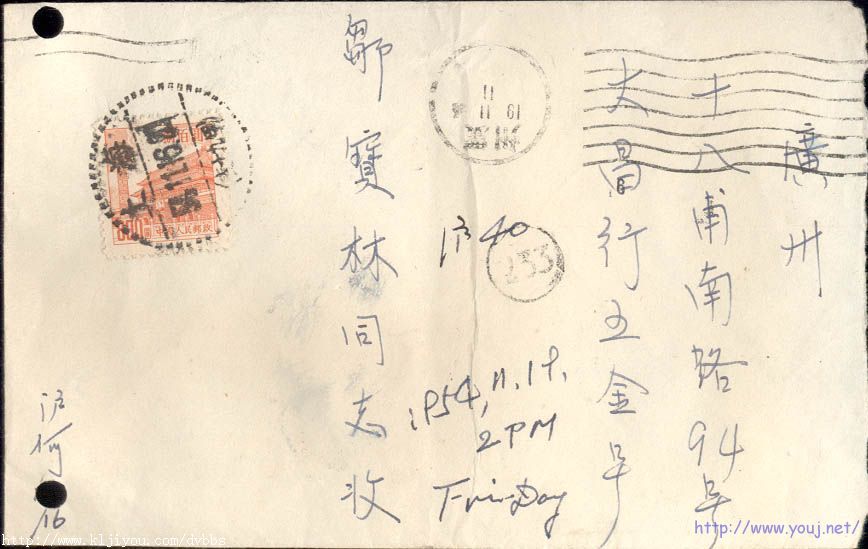 廣州
十八甫南路94号
大昌行五金号
鄒寶林同志收
沪40
233
1954,11.19.
2PM
Friday
沪何
16
19 11
11
廣州
上海
中国人民郵政
http://www.kljiyou.com/dvbbs
http://www.youj.net/